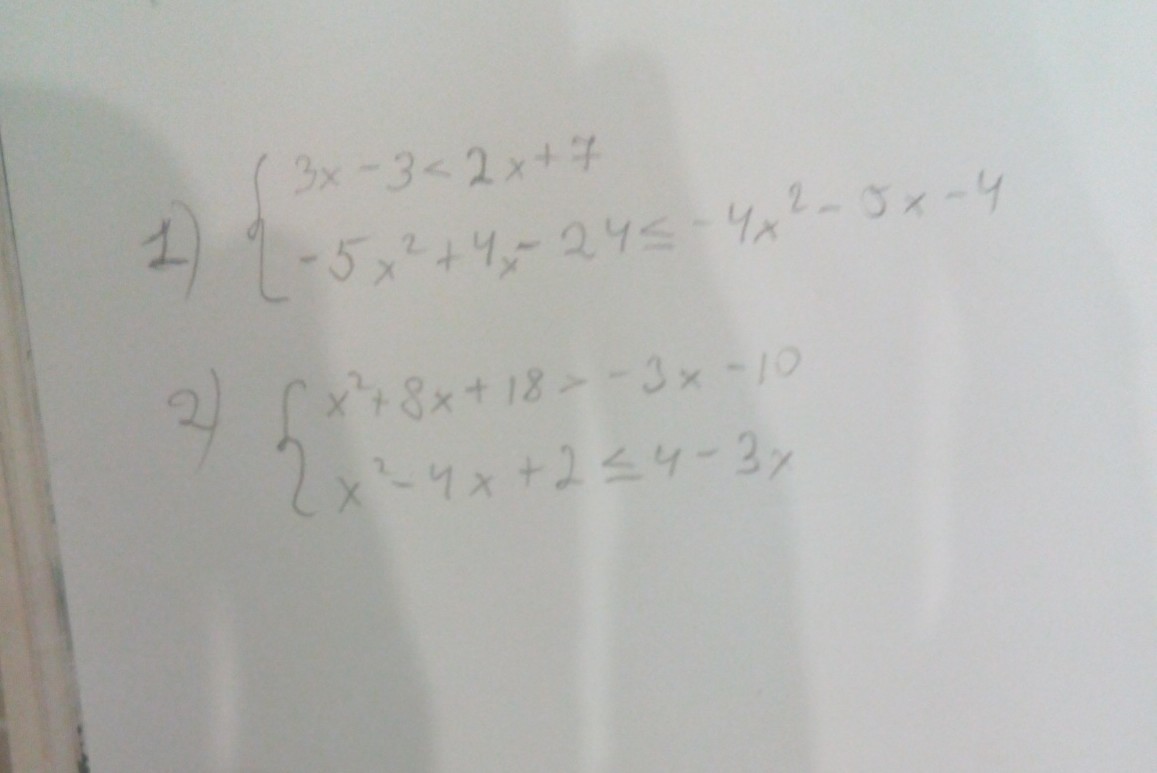 1) { 3x - 3 < 2x + 7
-5x² + 4x - 24 ≤ -4x² - 5x - 4
2) { x² + 8x + 18 > -3x - 10
x² - 4x + 2 ≤ 4 - 3x